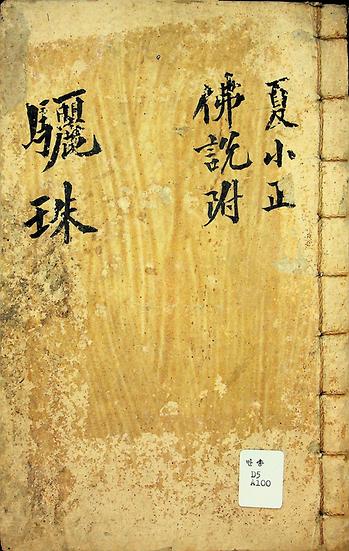 夏小正
佛說附
驪珠
만송
D5
A100